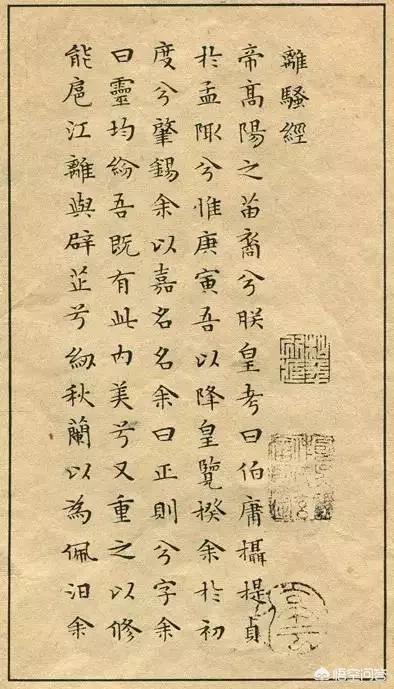 離騷經
帝高陽之苗裔兮朕皇考曰伯庸攝提貞
於孟陬兮惟庚寅吾以降皇覽揆余於初
度兮肇錫余以嘉名名余曰正則兮字余
曰靈均紛吾既有此內美兮又重之以修
能扈江離與辟芷兮紉秋蘭以為佩汨余
悟空问答